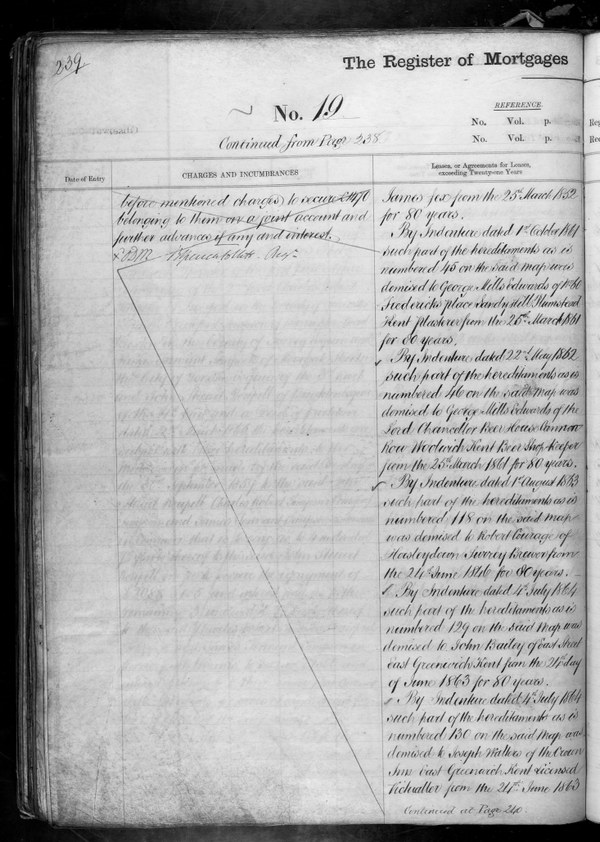 239
The Register of Mortgages
No. 19
REFERENCE.
No. Vol. p.
No. Vol. p.
Continued from Page 238
Date of Entry
CHARGES AND INCUMBRANCES
Leases, or Agreements for Leases,
exceeding Twenty-one Years
before mentioned charges to secure £1470
belonging to them on a joint account and
further advances if any and interest.
James fox from the 25th March 1852
for 80 years.
By Indenture dated 1st October 1861
such part of the hereditaments as is
numbered 45 on the said map was
demised to George Mills Edwards of
Fredericks place Sandy Hill Plumstead
Kent Plasterer from the 25th March 1861
for 80 years.
By Indenture dated 22nd May 1862
such part of the hereditaments as is
numbered 46 on the said map was
demised to George Mills Edwards of the
Lord Chancellor Beer House Cannon
Row Woolwich Kent Beer Shop keeper
from the 25th March 1861 for 80 years.
By Indenture dated 1st August 1863
such part of the hereditaments as is
numbered 118 on the said map
was demised to Robert Courage of
Horsleydown Surrey Brewer from
the 24th June 1846 for 80 years.
By Indenture dated 4th July 1864
such part of the hereditaments as is
numbered 129 on the said Map was
demised to John Bailey of East Street
East Greenwich Kent from the 24th day
of June 1863 for 80 years.
By Indenture dated 4th July 1864
such part of the hereditaments as is
numbered 130 on the said Map was
demised to Joseph Walters of the Crown
Inn East Greenwich Kent Licensed
Victualler from the 24th June 1863
Continued at Page 240